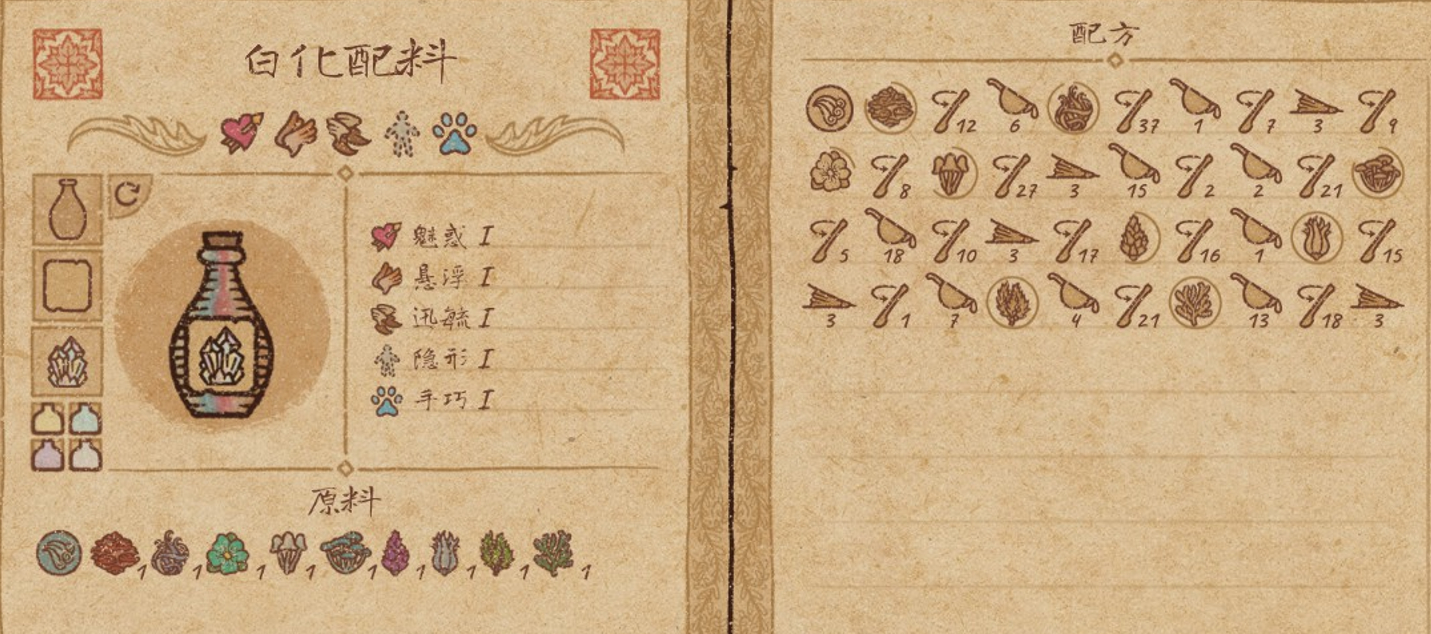 白化配料
魅惑 I
悬浮 I
迅毓 I
隐形 I
手巧 I
原料
1 1 1 1 1 1 1 1 1
配方
12 6 37 1 7 3 9
8 27 3 15 2 2 21
5 18 10 3 17 16 1 15
3 1 7 4 21 13 18 3